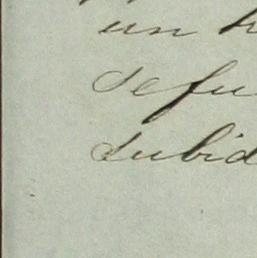 un h
defu
subid